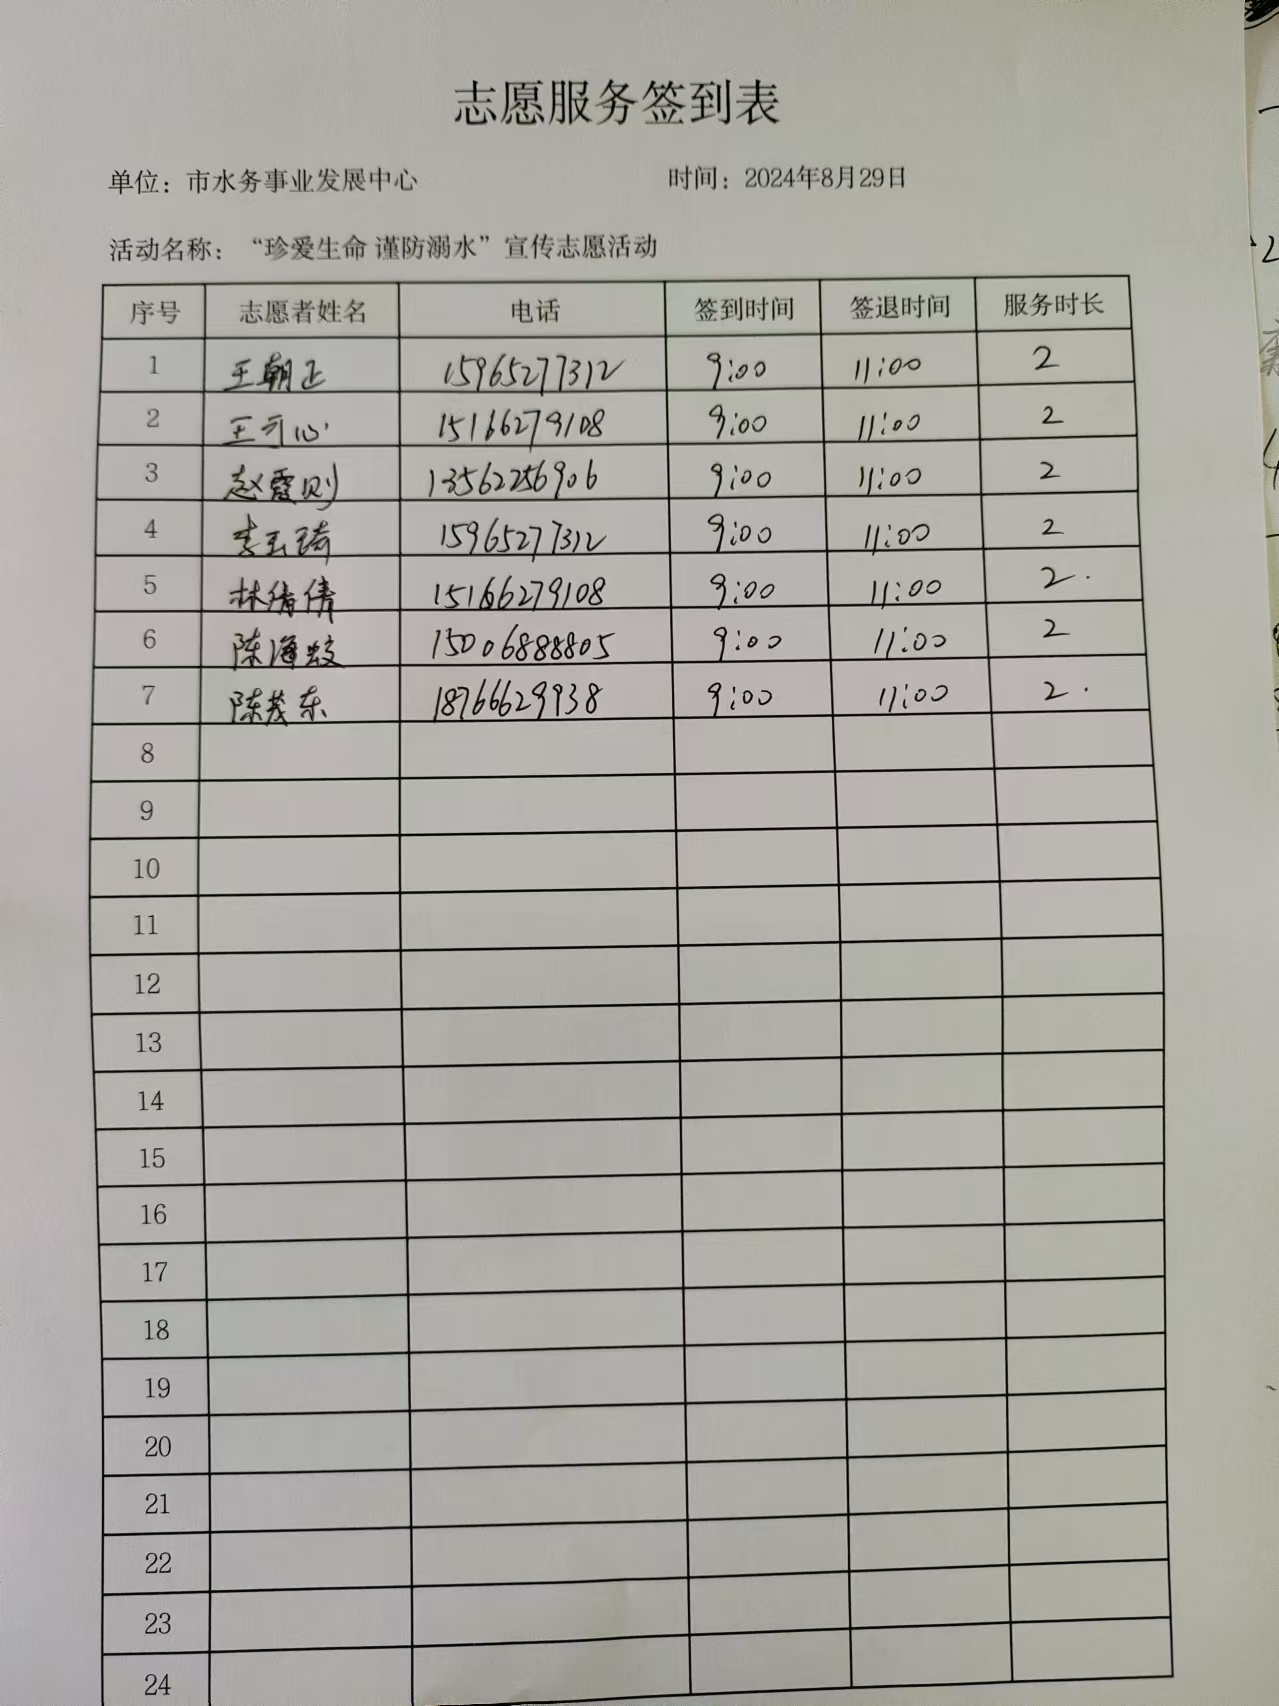 志愿服务签到表
单位：市水务事业发展中心 时间：2024年8月29日
活动名称：“珍爱生命 谨防溺水”宣传志愿活动
序号 志愿者姓名 电话 签到时间 签退时间 服务时长
1 王朝正 15965277312 9:00 11:00 2
2 王可心 15166279108 9:00 11:00 2
3 赵霞则 13562256906 9:00 11:00 2
4 李玉琦 15965277312 9:00 11:00 2
5 林倩倩 15166279108 9:00 11:00 2.
6 陈海蛟 15006888805 9:00 11:00 2
7 陈茂东 18766629938 9:00 11:00 2.
8
9
10
11
12
13
14
15
16
17
18
19
20
21
22
23
24